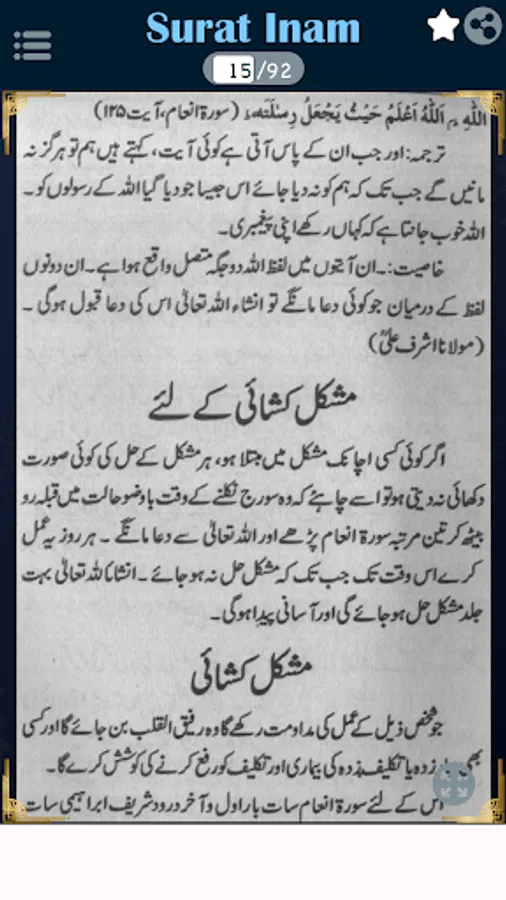 Surat Inam
15/92
اللّٰهِ ؕ اَللّٰهُ اَعْلَمُ حَيْثُ يَجْعَلُ رِسٰلَتَهٗ ؕ (سورۃ انعام، آیت ۱۲۵)
ترجمہ: اور جب ان کے پاس آتی ہے کوئی آیت، کہتے ہیں ہم تو ہرگز نہ
مانیں گے جب تک کہ ہم کو نہ دیا جائے اس جیسا جو دیا گیا اللہ کے رسولوں کو۔
اللہ خوب جانتا ہے کہ کہاں رکھے اپنی پیغمبری۔
خاصیت:۔ ان آیتوں میں لفظ اللہ دو جگہ متصل واقع ہوا ہے۔ ان دونوں
لفظ کے درمیان جو کوئی دعا مانگے تو انشاء اللہ تعالیٰ اس کی دعا قبول ہوگی۔
(مولانا اشرف علیؒ)
مشکل کشائی کے لئے
اگر کوئی کسی اچانک مشکل میں مبتلا ہو، ہر مشکل کے حل کی کوئی صورت
دکھائی نہ دیتی ہو تو اسے چاہئے کہ وہ سورج نکلنے کے وقت باوضو حالت میں قبلہ رو
بیٹھ کر تین مرتبہ سورۃ انعام پڑھے اور اللہ تعالیٰ سے دعا مانگے ۔ ہر روز یہ عمل
کرے اس وقت تک جب تک کہ مشکل حل نہ ہو جائے ۔ انشاءاللہ تعالیٰ بہت
جلد مشکل حل ہو جائے گی اور آسانی پیدا ہوگی۔
مشکل کشائی
جو شخص ذیل کے عمل کی مداومت رکھے گا وہ رفیق القلب بن جائے گا اور کسی
بھی زدہ یا تکلیف زدہ کی بیماری اور تکلیف کو رفع کرنے کی کوشش کرے گا۔
اس کے لئے سورۃ انعام سات بار اول و آخر درود شریف ابراہیمی سات